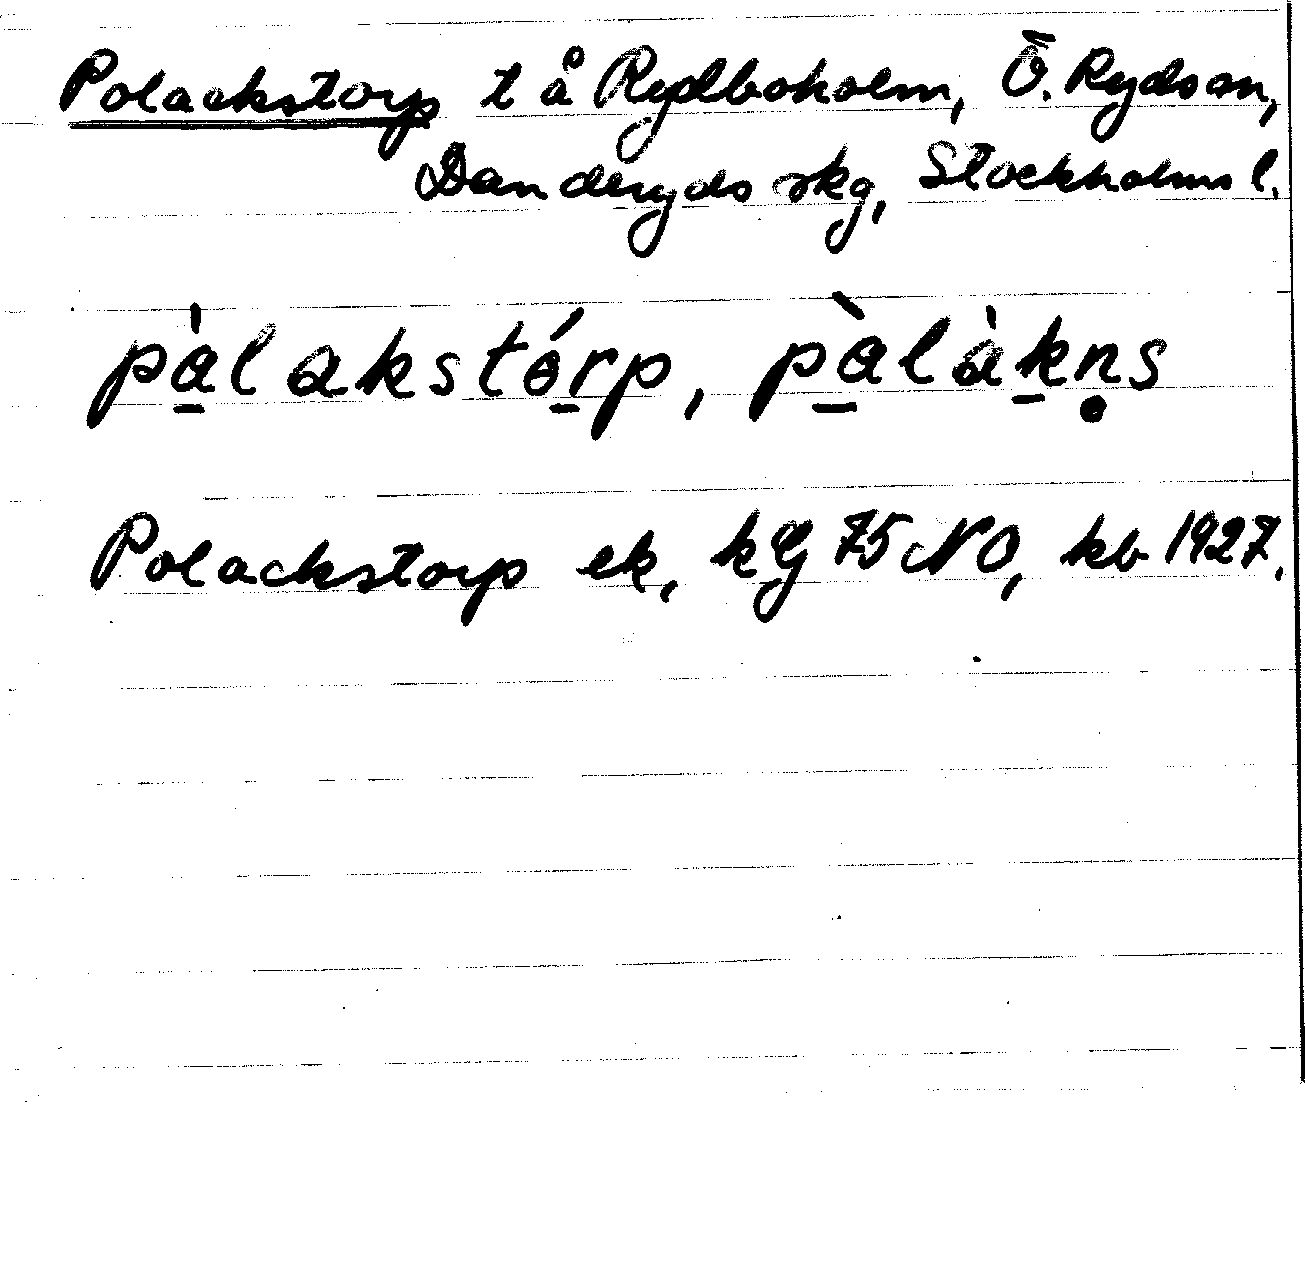 Polackstorp t å Rydboholm, Ö. Ryds sn,
Danderyds skg, Stockholms l.
pàlakstórp, pàlàkṇs
Polackstorp ek, kg 75 NO, kb 1927.